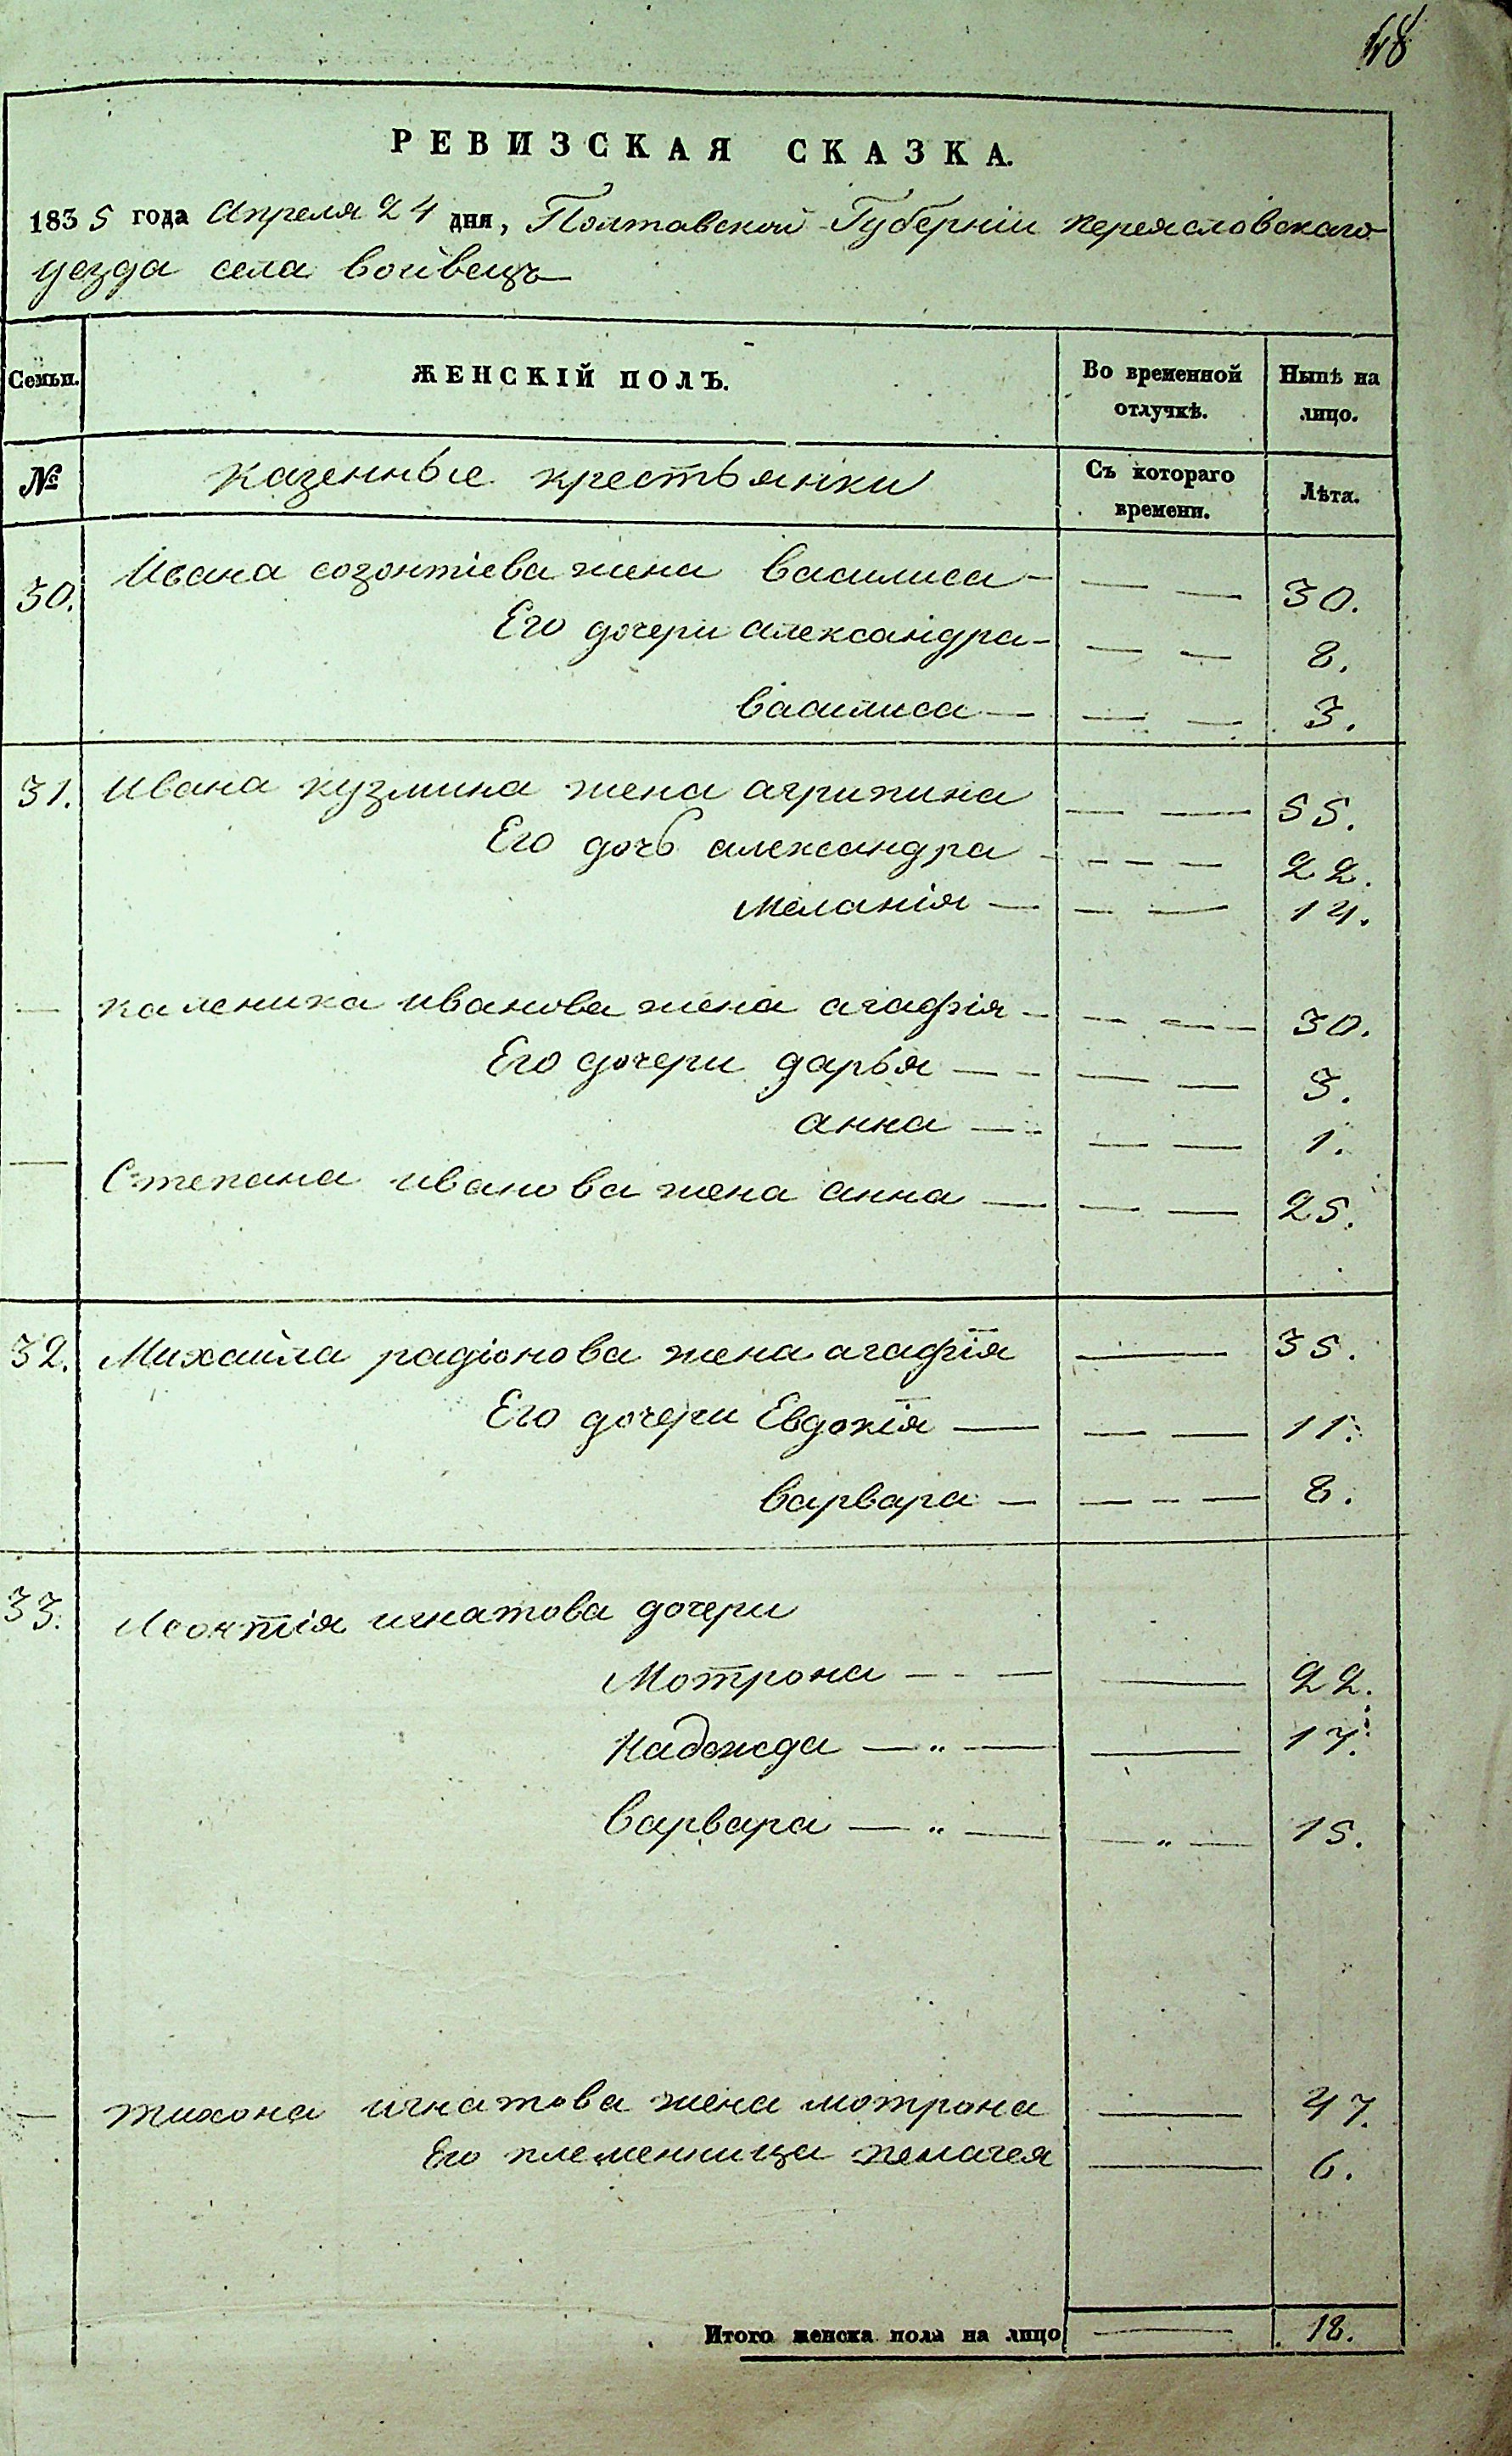 48
РЕВИЗСКАЯ СКАЗКА.
1835 года Апреля 24 дня, Полтавской Губерніи переясловскаго
уезда села войвецъ
Семьи. ЖЕНСКІЙ ПОЛЪ. Во временной отлучкѣ. Нынѣ на лицо.
№ казенные крестьянки Съ котораго времени. Лѣта.
30. Ивана созонтіева жена василиса — — — 30.
Его дочери александра — — — 8.
василиса — — — 3.
31. Ивана кузмина жена агрипина — — 55.
Его дочь александра — — — 22.
меланія — — — 14.
— каленика иванова жена агафія — — — 30.
Его дочери дарья — — — — 3.
анна — — — — 1.
— Степана иванова жена анна — — — 25.
32. Михаила радіонова жена агафія — 35.
Его дочери Евдокія — — — 11.
варвара — — — — 8.
33. Леонтія игнатова дочери
Мотрона — — — — 22.
Надежда — „ — — 17.
варвара — „ — — „ — 15.
— тихона игнатова жена мотрона — 47.
Его племенница пелагея — 6.
Итого женска пола на лицо — 18.